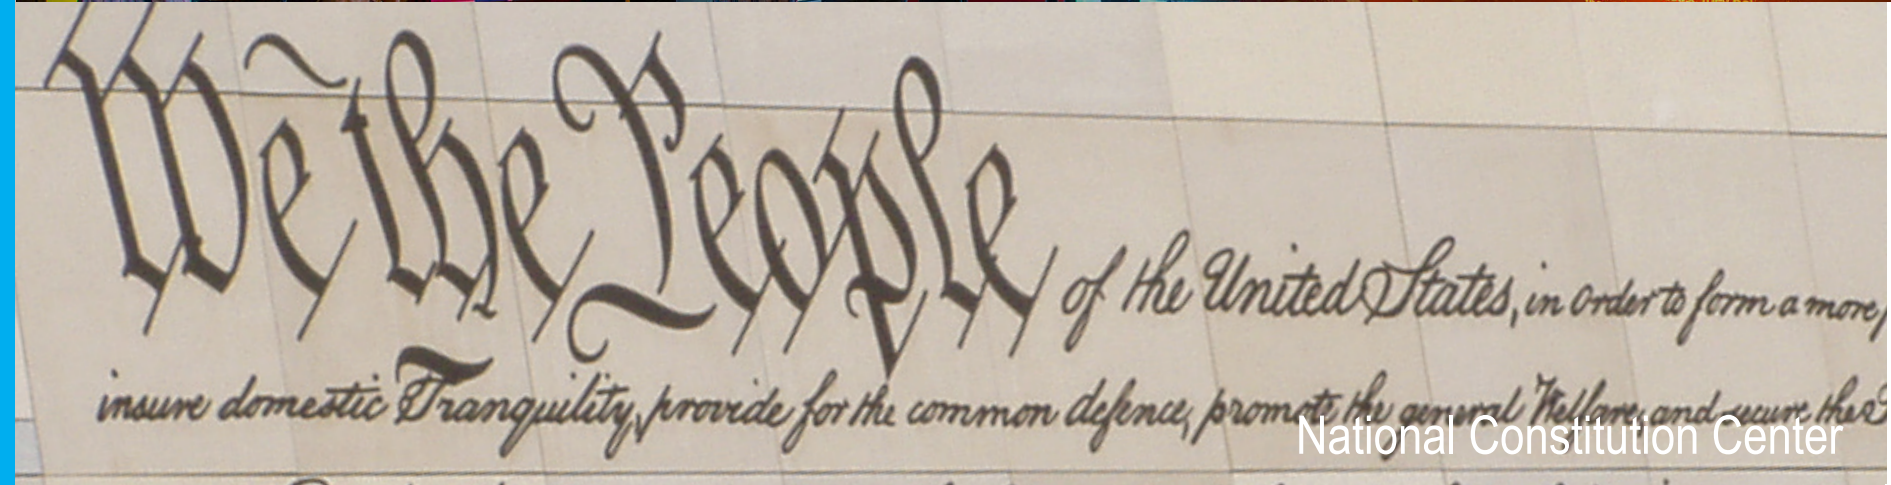 We the People of the United States, in Order to form a more
insure domestic Tranquility, provide for the common defence, promote the general Welfare, and secure the
National Constitution Center